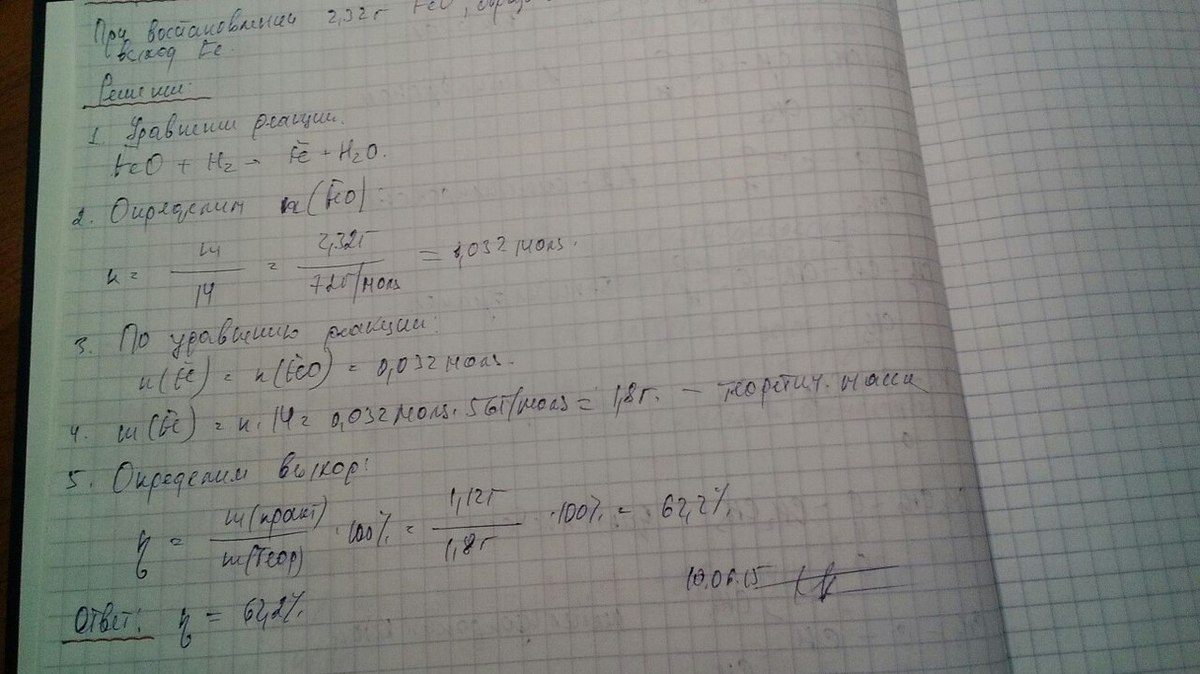 При востановлении 2,32г FeO,
выход Fe.
Решение:
1. Уравнение реакции.
FeO + H₂ → Fe + H₂O.
2. Определим n(FeO):
n = m/M = 2,32г/72г/моль = 0,032 моль.
3. По уравнению реакции:
n(Fe) = n(FeO) = 0,032 моль.
4. m(Fe) = n·M = 0,032 моль·56г/моль = 1,8г. – теоретич. масса
5. Определим выход:
η = m(практ)/m(теор) ·100% = 1,12г/1,8г ·100% = 62,2%.
10.06.15
Ответ: η = 62,2%.